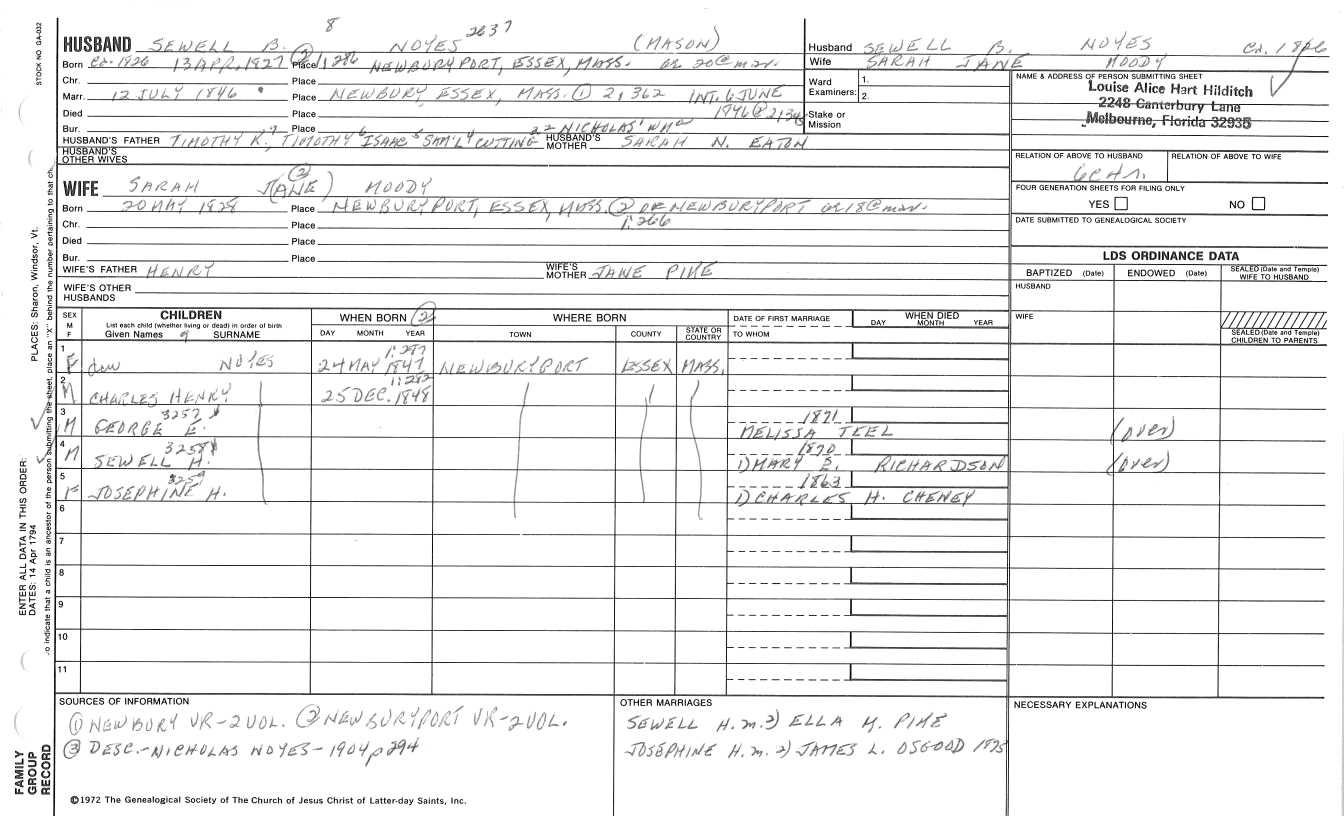 8
HUSBAND SEWELL B. NOYES 2637 (MASON)
Born Ca. 1826 13 APR. 1827 ② Place 1:286 NEWBURYPORT, ESSEX, MASS. or 20 @ mar.
Chr. Place
Marr. 12 JULY 1846 Place NEWBURY ESSEX, MASS. ① 2,362 INT. 6 JUNE
Died Place 1846 ②
Bur. Place
HUSBAND'S FATHER TIMOTHY K.7, TIMOTHY6 ISAAC5 SAM'L4 CUTTING3 NICHOLAS2 WM1 HUSBAND'S MOTHER SARAH N. EATON
HUSBAND'S OTHER WIVES
WIFE SARAH J(ANE) ② MOODY
Born 20 MAY 1828 Place NEWBURYPORT, ESSEX, MASS. ② OR NEWBURYPORT or 18 @ mar.
1:266
Chr. Place
Died Place
Bur. Place
WIFE'S FATHER HENRY WIFE'S MOTHER JANE PIKE
WIFE'S OTHER HUSBANDS
Husband SEWELL B. NOYES Ca. 1826
Wife SARAH JANE MOODY
Ward Examiners: 1. 2.
Stake or Mission
NAME & ADDRESS OF PERSON SUBMITTING SHEET
Louise Alice Hart Hilditch
2248 Canterbury Lane
Melbourne, Florida 32935
RELATION OF ABOVE TO HUSBAND RELATION OF ABOVE TO WIFE
FOUR GENERATION SHEETS FOR FILING ONLY
YES NO
DATE SUBMITTED TO GENEALOGICAL SOCIETY
LDS ORDINANCE DATA
BAPTIZED (Date) ENDOWED (Date) SEALED (Date and Temple) WIFE TO HUSBAND
HUSBAND
WIFE
SEALED (Date and Temple) CHILDREN TO PARENTS
SEX M F
CHILDREN
List each child (whether living or dead) in order of birth
Given Names SURNAME
WHEN BORN ②
DAY MONTH YEAR
WHERE BORN
TOWN COUNTY STATE OR COUNTRY
DATE OF FIRST MARRIAGE
TO WHOM
WHEN DIED
DAY MONTH YEAR
1 F dau NOYES 24 MAY 1847 1:287 NEWBURYPORT ESSEX MASS.
2 M CHARLES HENRY 25 DEC. 1848 1:282
3 M GEORGE E. 3257 1871 MELISSA TEEL (over)
4 M SEWELL H. 3258 1870 1) MARY E. RICHARDSON (over)
5 F JOSEPHINE H. 3259 1863 1) CHARLES H. CHENEY
6
7
8
9
10
11
SOURCES OF INFORMATION
① NEWBURY VR-2VOL. ② NEWBURYPORT VR-2VOL.
③ DESC.-NICHOLAS NOYES-1904, p 294
OTHER MARRIAGES
SEWELL H. m. 2) ELLA M. PIKE
JOSEPHINE H. m. 2) JAMES L. OSGOOD 1875
NECESSARY EXPLANATIONS
©1972 The Genealogical Society of The Church of Jesus Christ of Latter-day Saints, Inc.
STOCK NO GA-032
PLACES: Sharon, Windsor, Vt.
ENTER ALL DATA IN THIS ORDER:
DATES: 14 Apr 1794
To indicate that a child is an ancestor of the person submitting the sheet, place an "X" behind the number pertaining to that ch
FAMILY GROUP RECORD